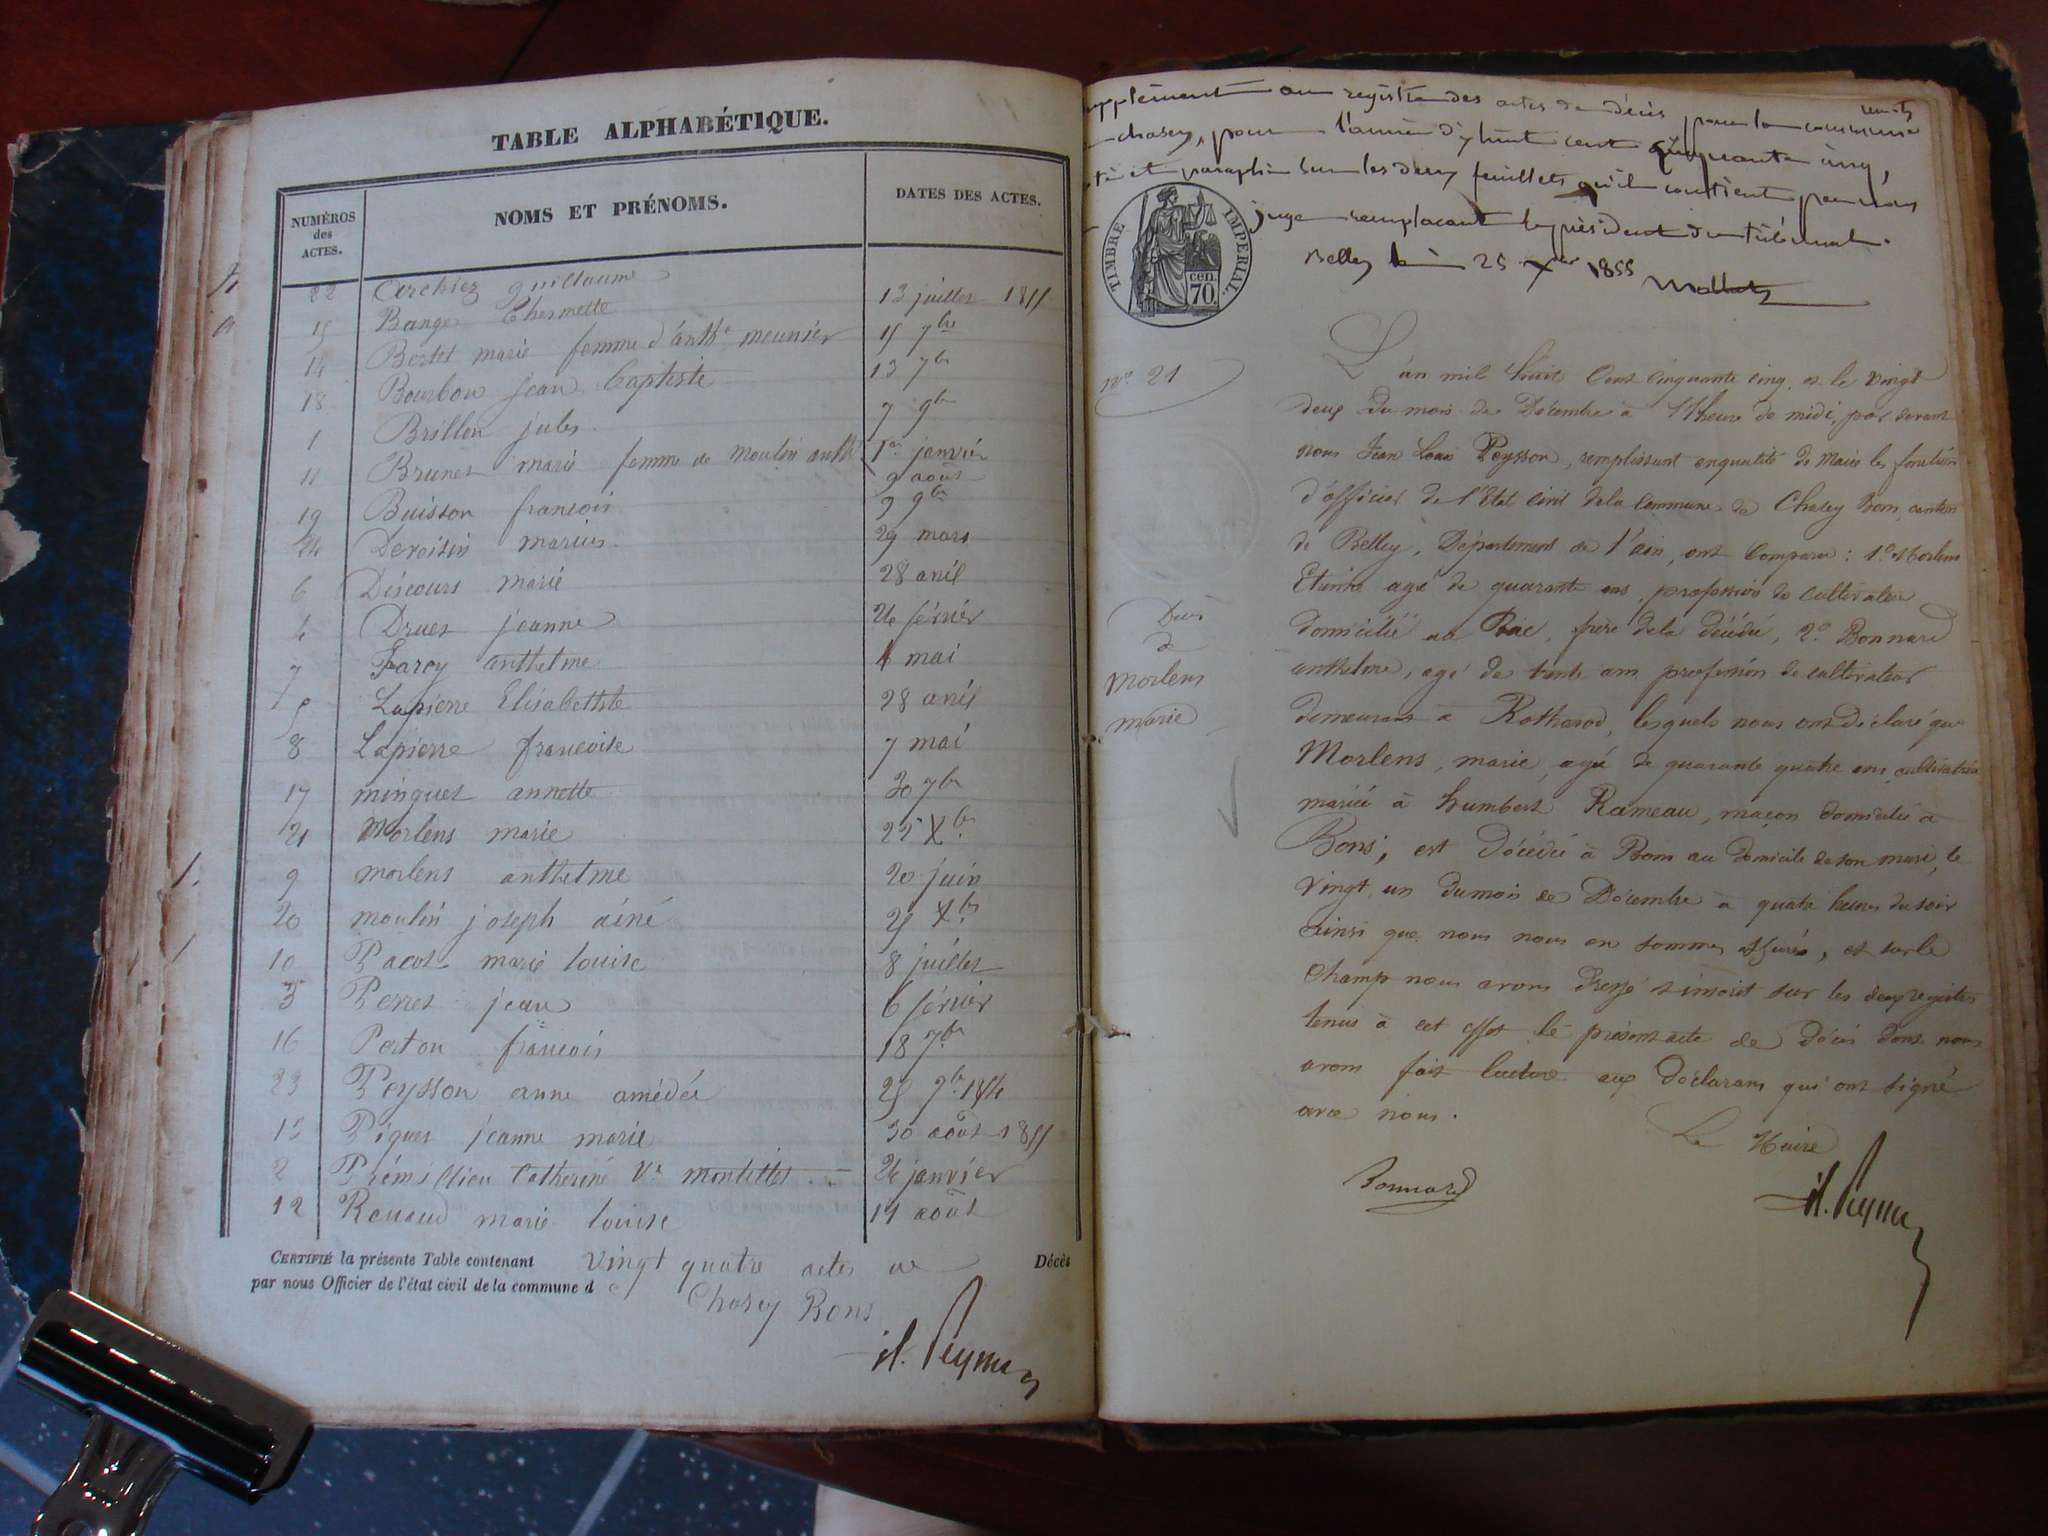 TABLE ALPHABÉTIQUE.
NUMÉROS des ACTES.
NOMS ET PRÉNOMS.
DATES DES ACTES.
22 guillaume 13 juillet 1855
15 15 7bre
14 Bertet marie femme d'anthe meunier 13 7bre
18 Bourbon jean baptiste 7 9bre
1 Brillon jules 1er janvier
11 Brunet marie femme de moulin anthe 9 août
19 Buisson françois 9 9bre
24 Devoisin marius 29 mars
6 Discours marie 28 avril
4 Druet jeanne 24 février
7 Farcy anthelme 4 mai
5 Lapierre Elisabethte 28 avril
8 Lapierre françoise 7 mai
17 minguet annette 30 7bre
21 Morlens marie 22 Xbre
9 morlens anthelme 20 juin
20 moulin joseph ainé Xbre
10 Pacot marie louise 8 juillet
3 Perret jean 6 février
16 Perton françois 18 7bre
23 Peysson anne amédée
13 Piquet jeanne marie 30 août 1855
2 Prémillieu Catherine Ve montillet 24 janvier
12 Renaud marie louise 11 août
CERTIFIÉ la présente Table contenant vingt quatre actes de Décès
par nous Officier de l'état civil de la commune d e
Chasey Bons
supplément au registre des actes de décès pour la commune
chasey, pour l'année dix huit cent cinquante cinq,
et paraphé sur les deux feuillets qu'il contient par nous
juge remplaçant le président du tribunal.
Belley le 25 Xbre 1855
TIMBRE IMPÉRIAL.
70 cen.
no 21
Décès
de
Morlens
marie
L'an mil huit cent cinquante cinq et le vingt
deux du mois de Décembre à heure de midi, par devant
nous Jean Louis Peysson, remplissant en qualité de Maire les fonctions
d'officier de l'Etat civil de la commune de Chasey Bons, canton
de Belley, Département de l'ain, ont comparu : 1o Morlens
Etienne agé de quarante ans, profession de cultivateur
domicilié au frère de la décédée, 2o Bonnard
anthelme, agé de trente ans profession de cultivateur
demeurant à Rothonod, lesquels nous ont déclaré que
Morlens, marie, agée de quarante quatre ans, cultivatrice
mariée à humbert Rameau, maçon domicilié à
Bons, est décédée à Bons au domicile de son mari, le
vingt un du mois de Décembre à quatre heures du soir
ainsi que nous nous en sommes assurés, et sur le
champ nous avons dressé et inscrit sur les deux registres
tenus à cet effet le présent acte de décès dont nous
avons fait lecture aux déclarans qui ont signé
avec nous.
Le Maire
Bonnard